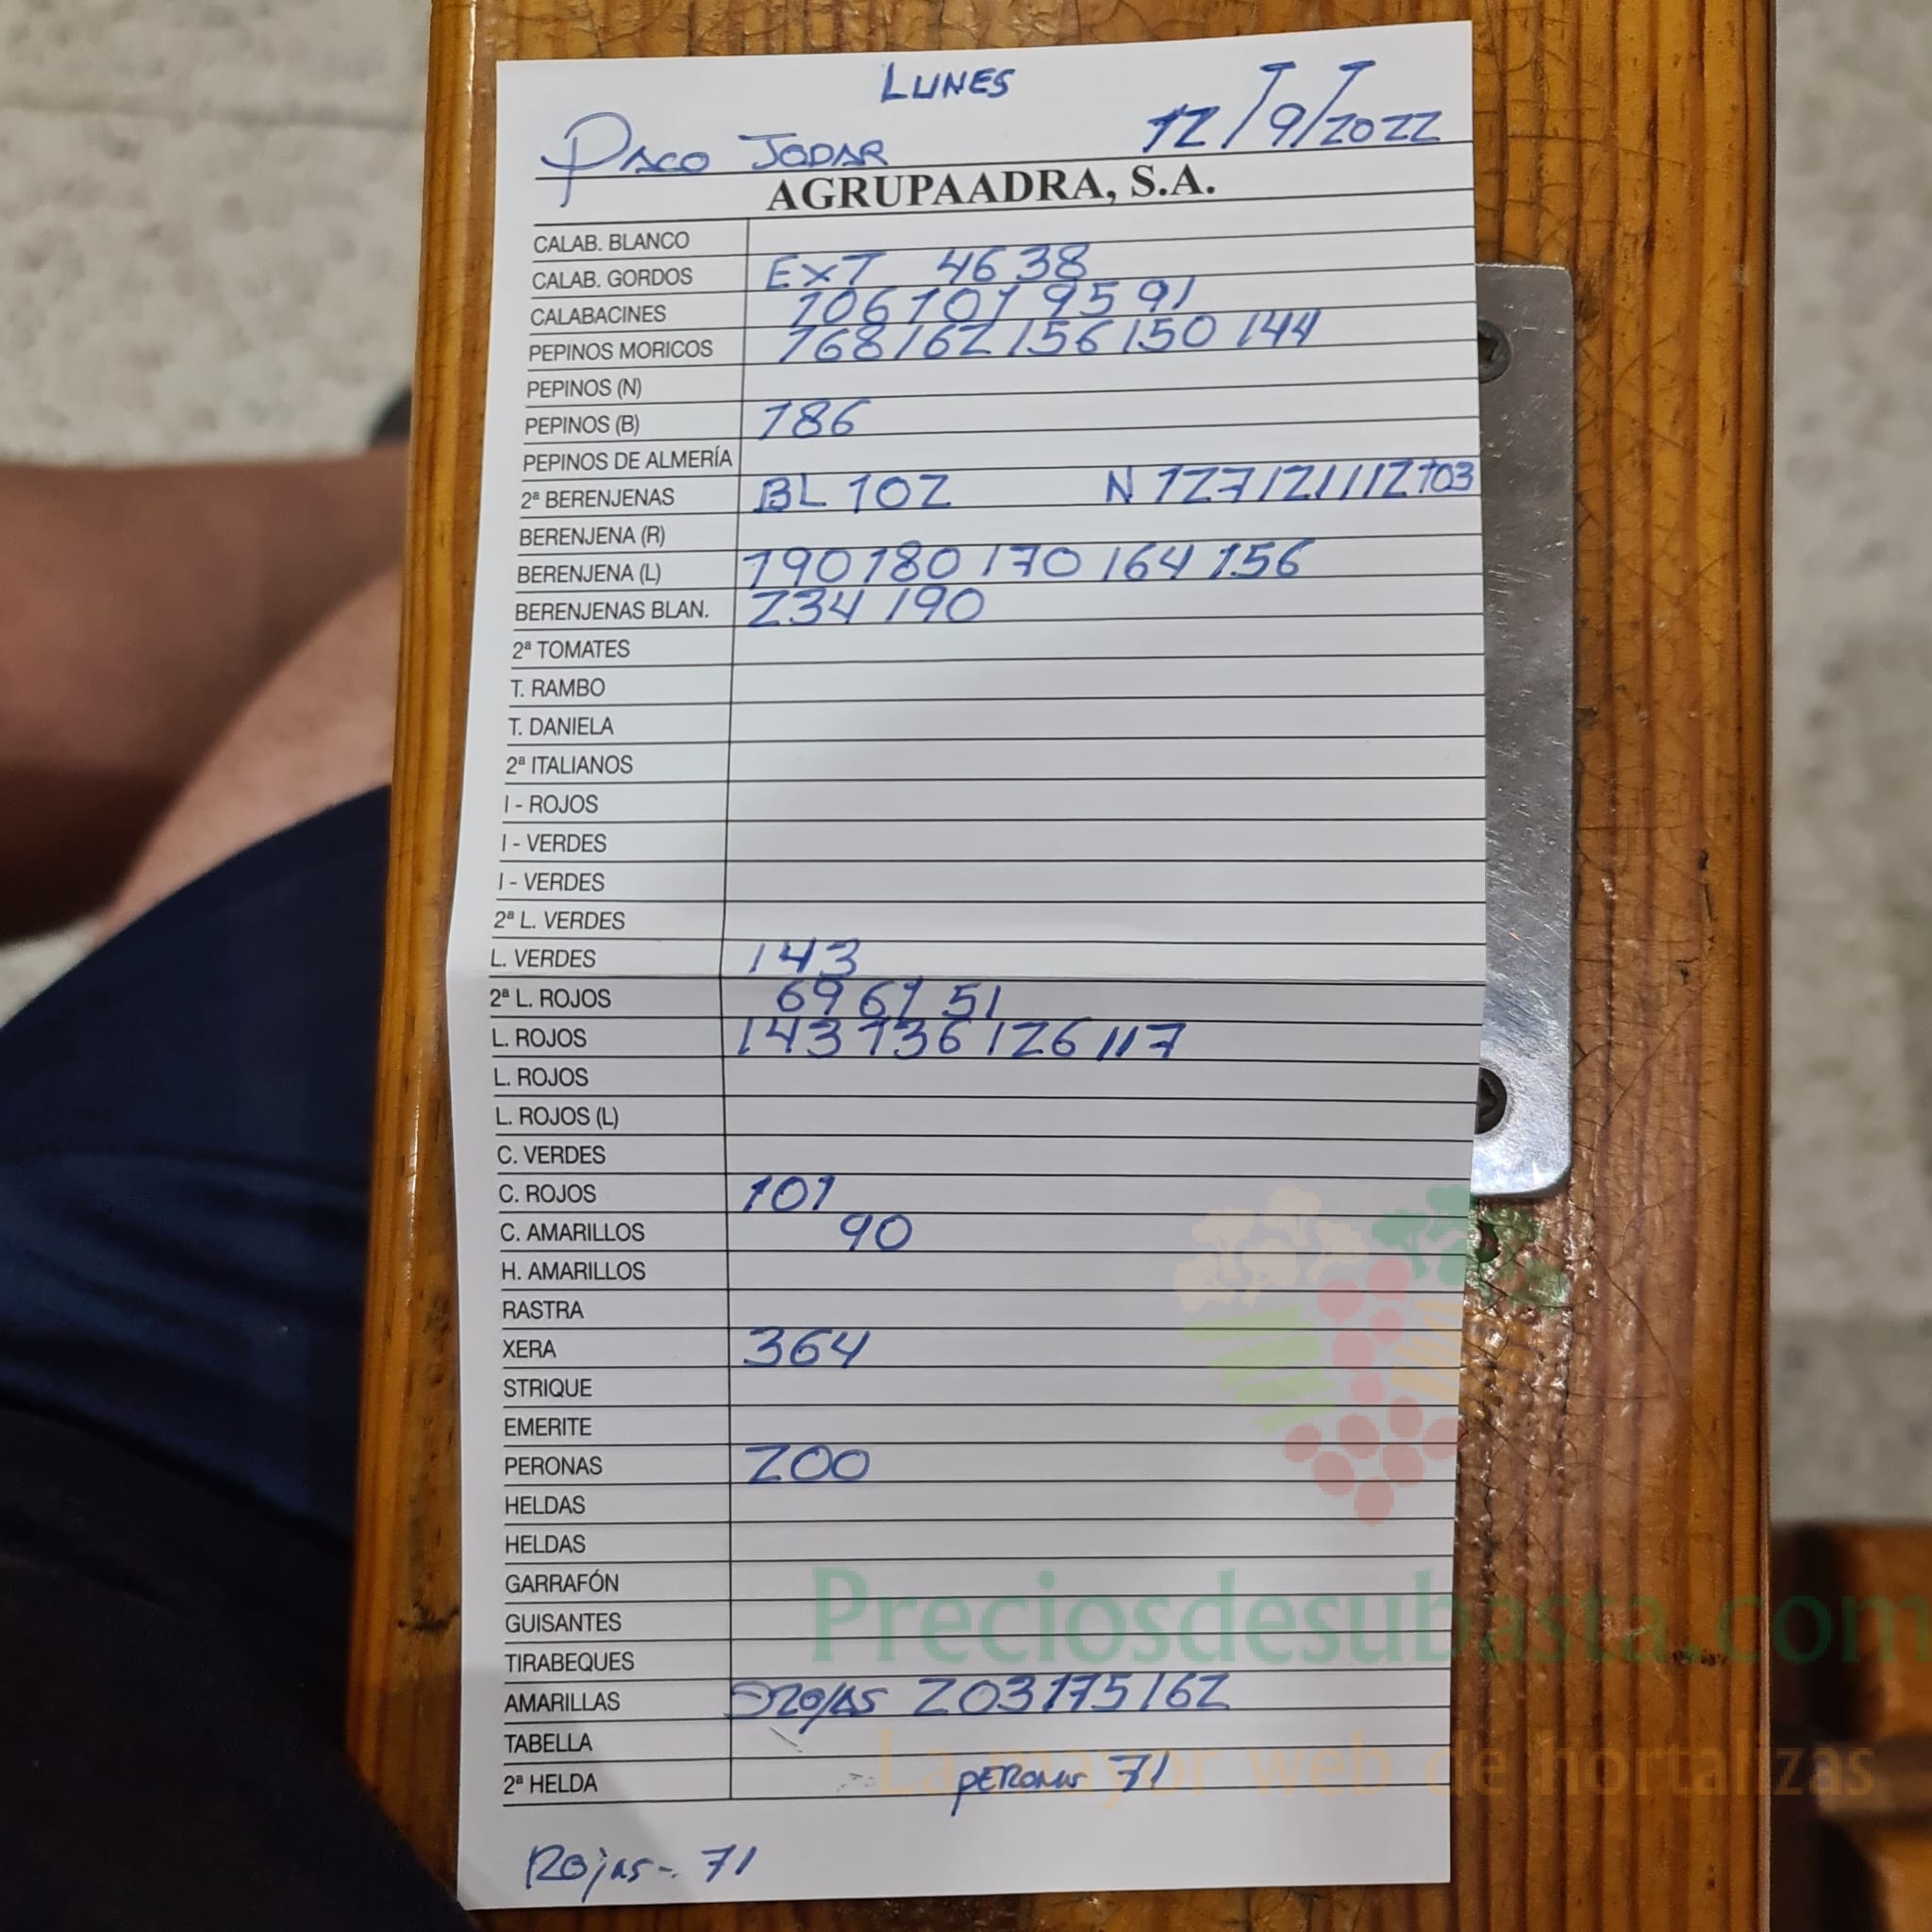 LUNES
PACO JODAR 12/9/2022
AGRUPAADRA, S.A.
CALAB. BLANCO
CALAB. GORDOS EXT 46 38
CALABACINES 106 101 95 91
PEPINOS MORICOS 168 162 156 150 144
PEPINOS (N)
PEPINOS (B) 186
PEPINOS DE ALMERÍA
2ª BERENJENAS BL 102 N 127 121 112 103
BERENJENA (R)
BERENJENA (L) 190 180 170 164 156
BERENJENAS BLAN. 234 190
2ª TOMATES
T. RAMBO
T. DANIELA
2ª ITALIANOS
I - ROJOS
I - VERDES
I - VERDES
2ª L. VERDES
L. VERDES 143
2ª L. ROJOS 69 61 51
L. ROJOS 143 136 126 117
L. ROJOS
L. ROJOS (L)
C. VERDES
C. ROJOS 101
C. AMARILLOS 90
H. AMARILLOS
RASTRA
XERA 364
STRIQUE
EMERITE
PERONAS 200
HELDAS
HELDAS
GARRAFÓN
GUISANTES
Preciosdesubasta.com
TIRABEQUES
AMARILLAS ROJAS 203 175 162
TABELLA
La mayor web de hortalizas
2ª HELDA PERONAS 71
ROjAS- 71